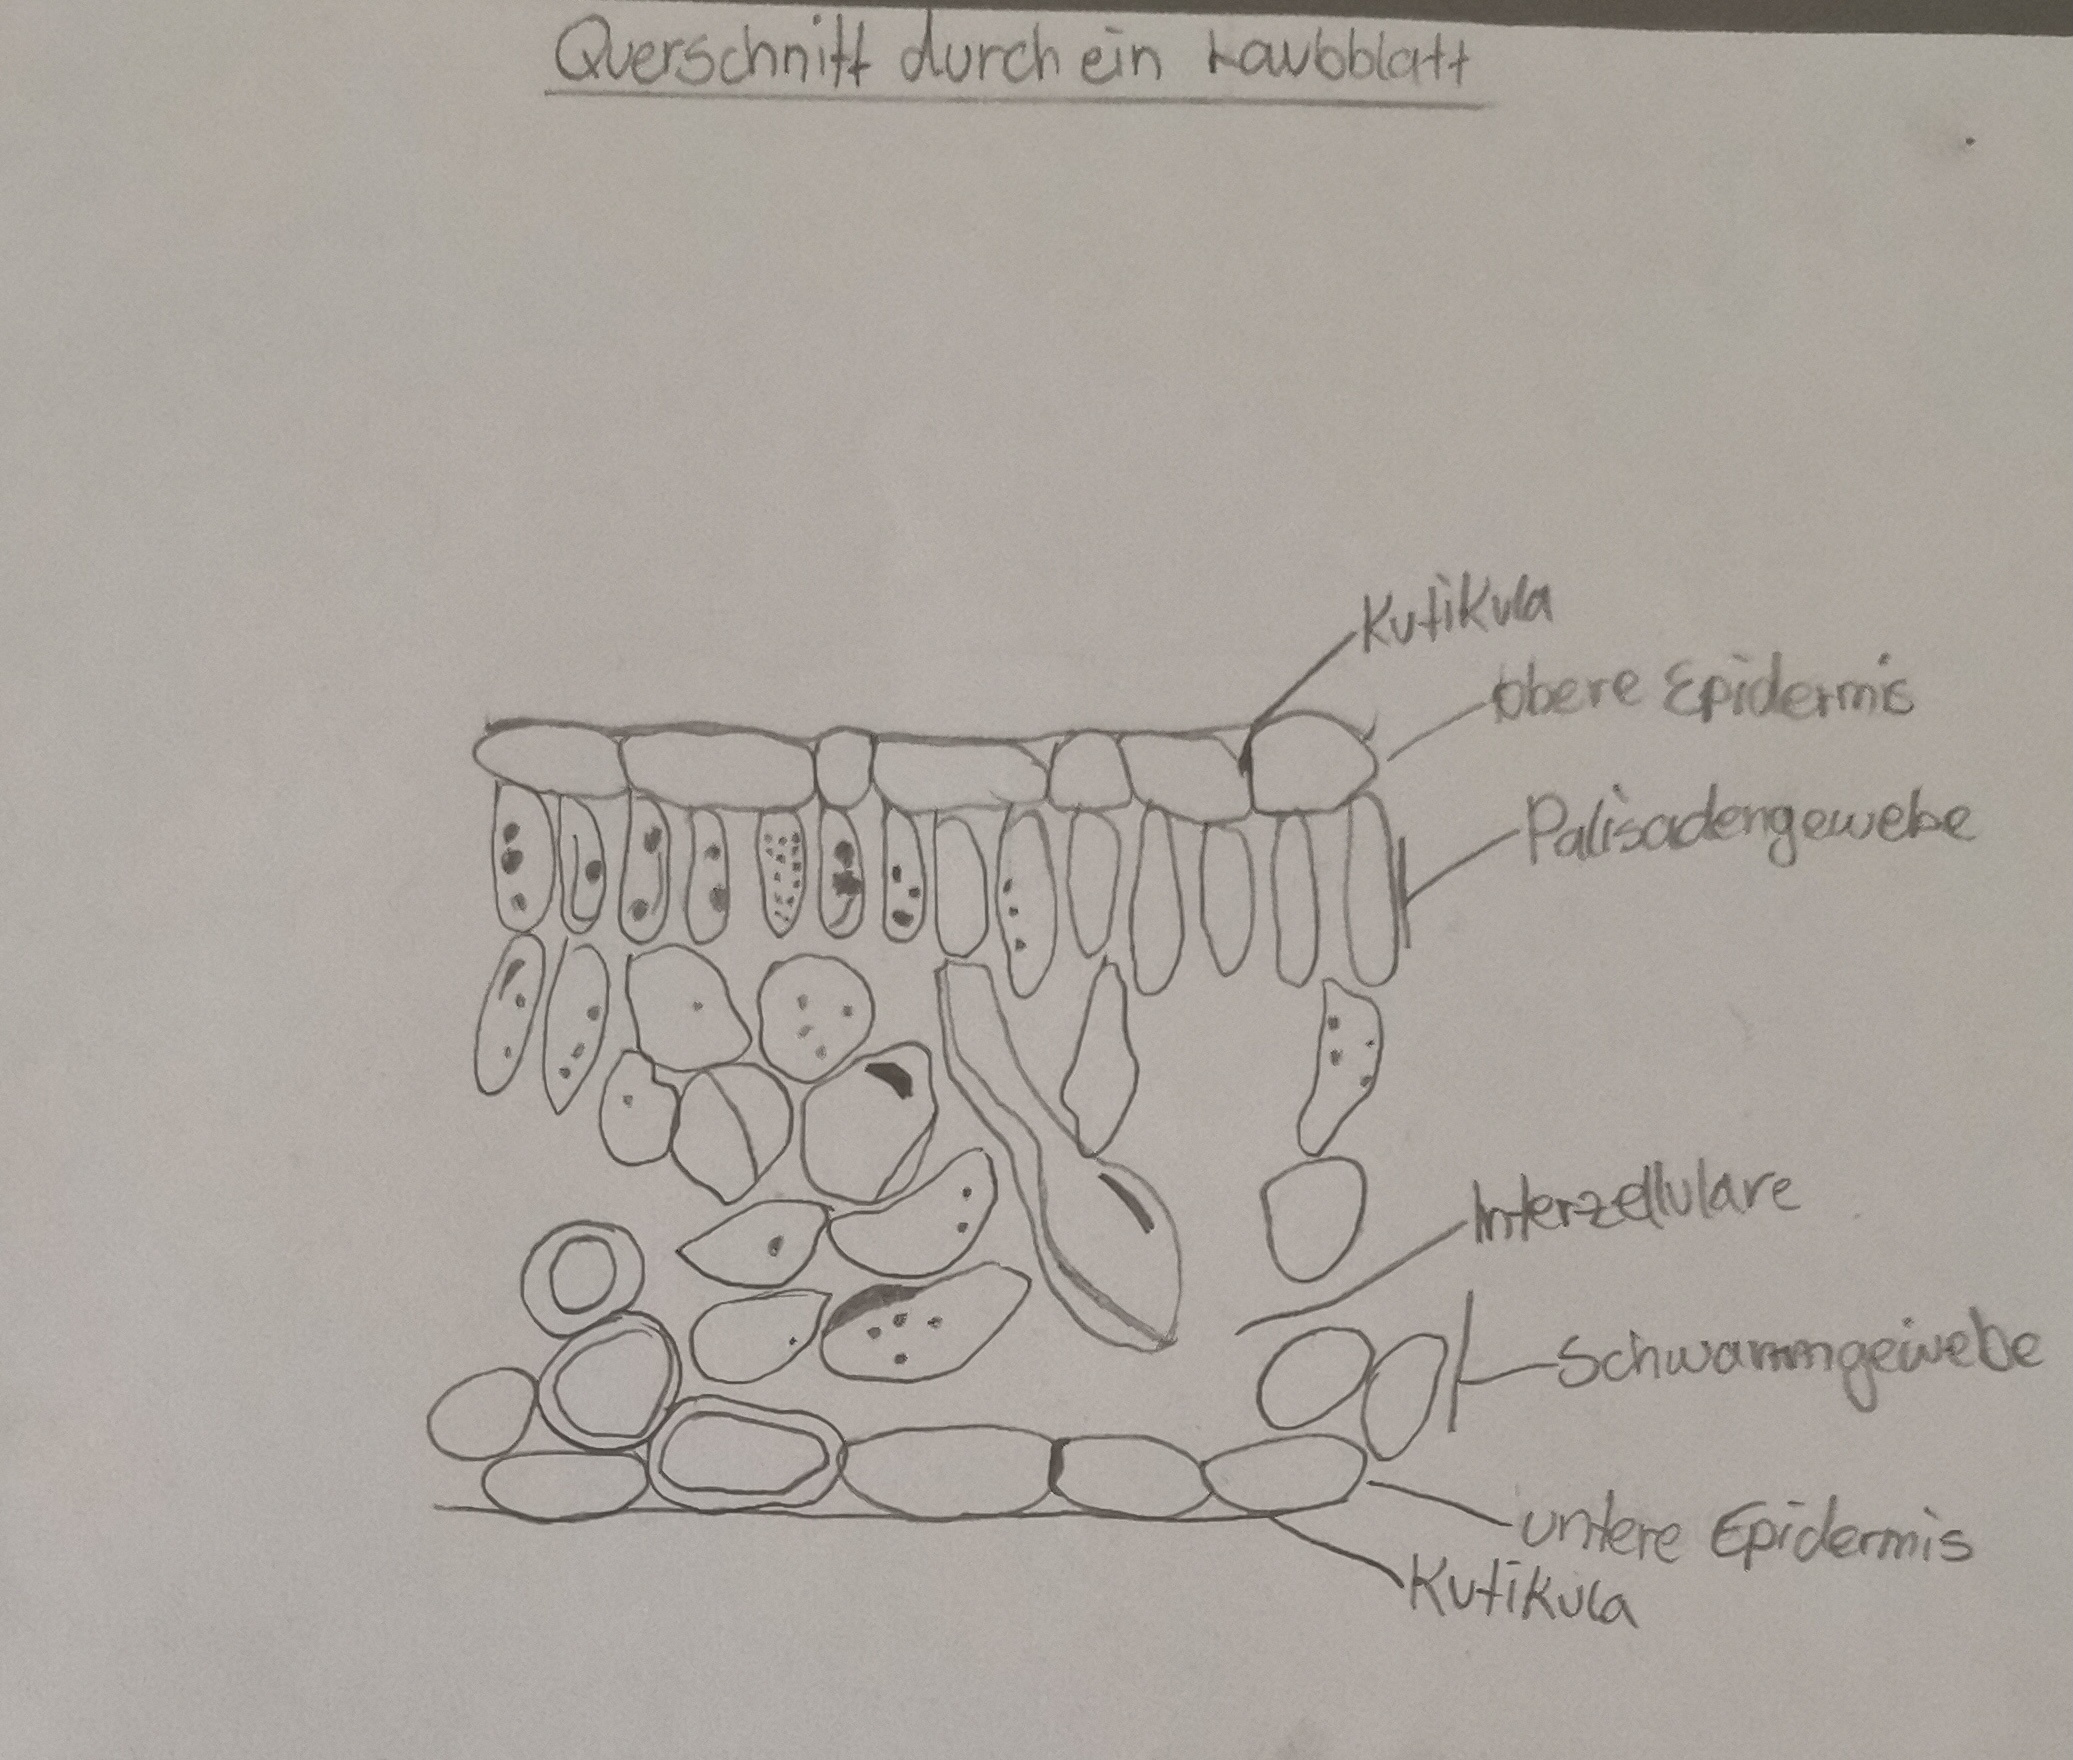 Querschnitt durch ein Laubblatt
Kutikula
obere Epidermis
Palisadengewebe
Interzellulare
Schwammgewebe
untere Epidermis
Kutikula